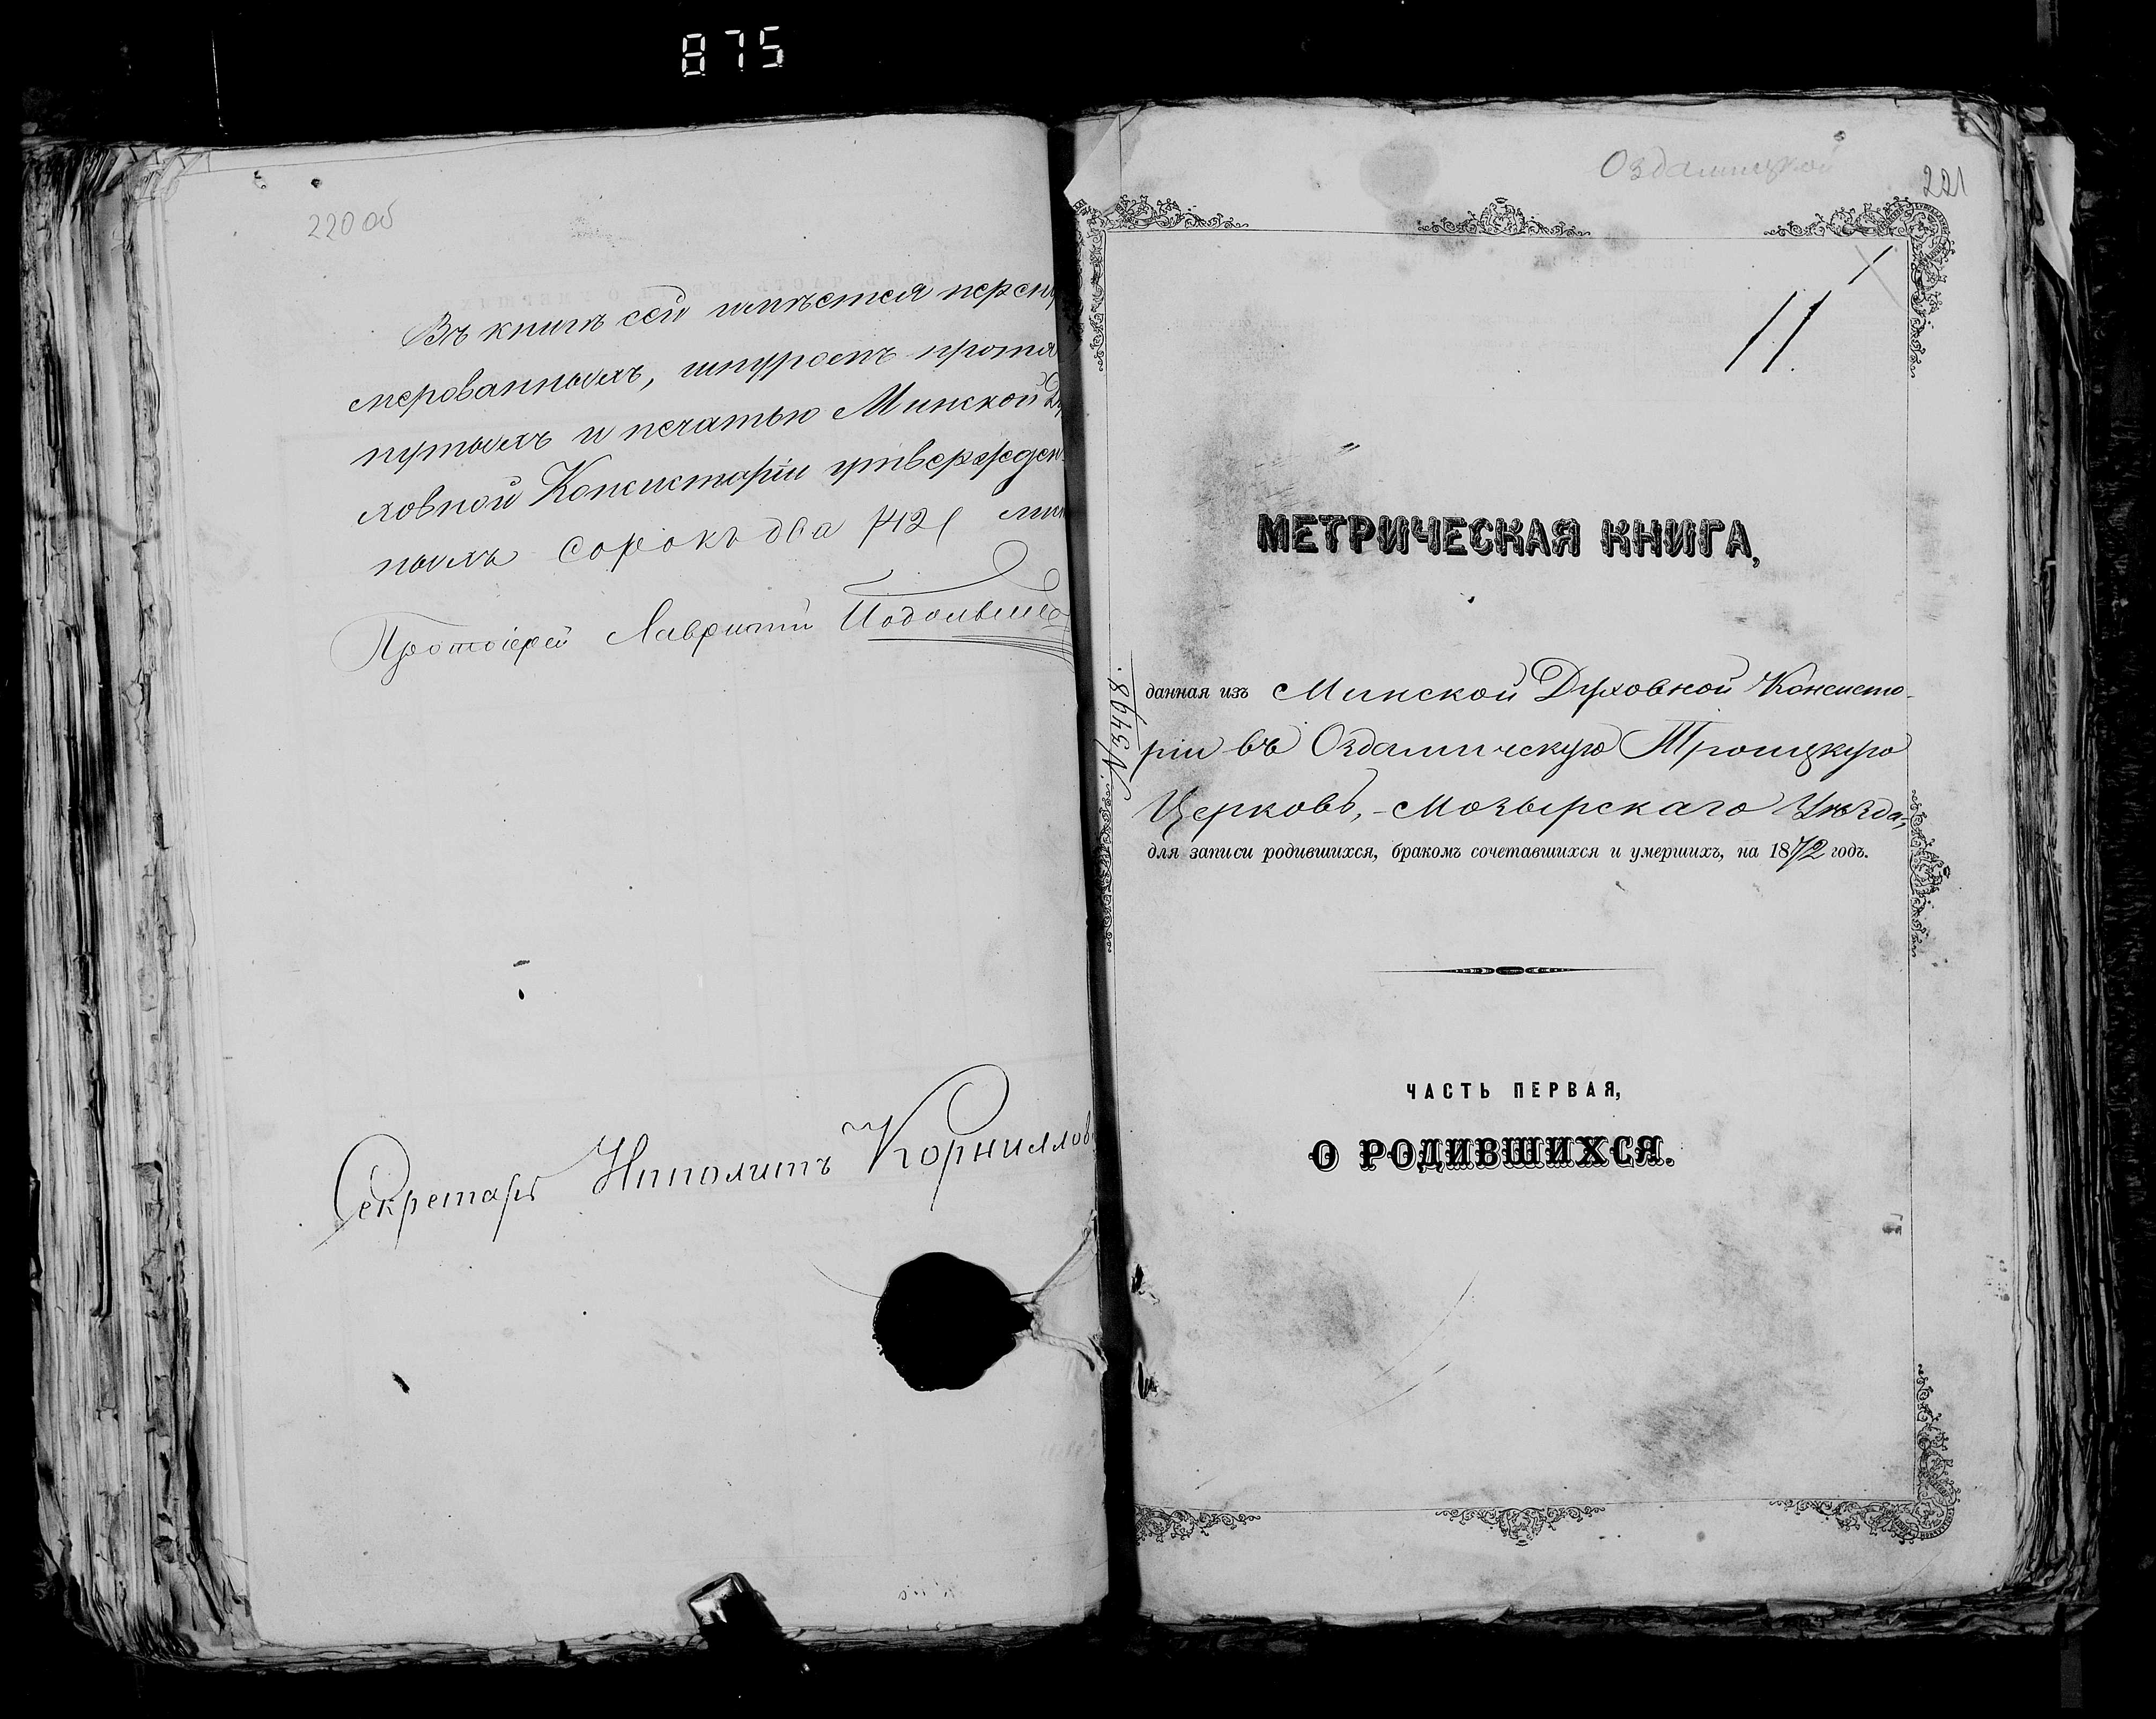 875
220 об
Въ книгѣ сей имѣется перену
мерованныхъ, шнуромъ протя
нутыхъ и печатью Минской Ду
ховной Консисторіи утвержден
ныхъ сорокъ два /42/ лис
Протоіерей
Секретарь Ипполитъ Корнилов
Оздамицкой
221
11
МЕТРИЧЕСКАЯ КНИГА,
N 3498.
данная изъ Минской Духовной Консисто-
ріи въ Оздамическую Троицкую
Церковь, Мозырскаго Уѣзда,
для записи родившихся, бракомъ сочетавшихся и умершихъ, на 1872 годъ.
ЧАСТЬ ПЕРВАЯ,
О РОДИВШИХСЯ.